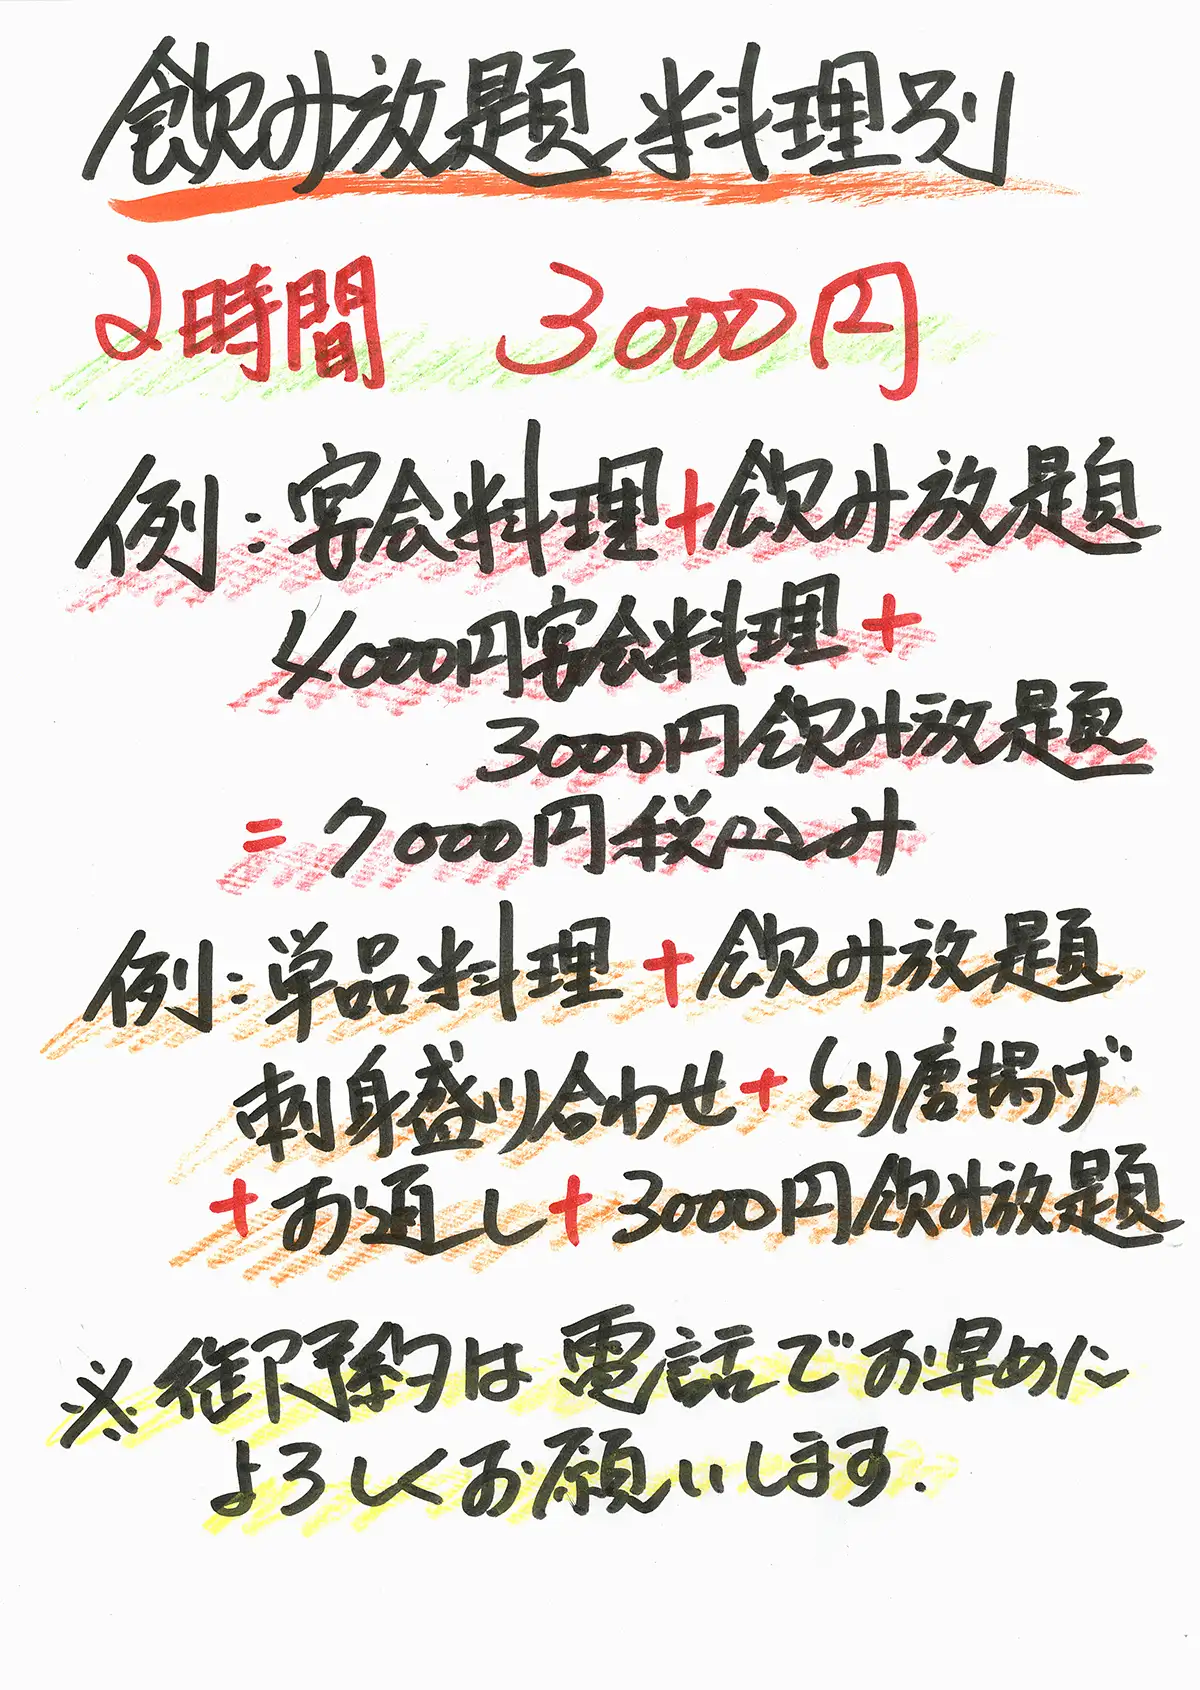 飲み放題 料理別
2時間 3000円
例:宴会料理+飲み放題
4000円宴会料理+
3000円飲み放題
=7000円税込み
例:単品料理+飲み放題
刺身盛り合わせ+とり唐揚げ
+お通し+3000円飲み放題
※御予約は電話でお早めに
よろしくお願いします.